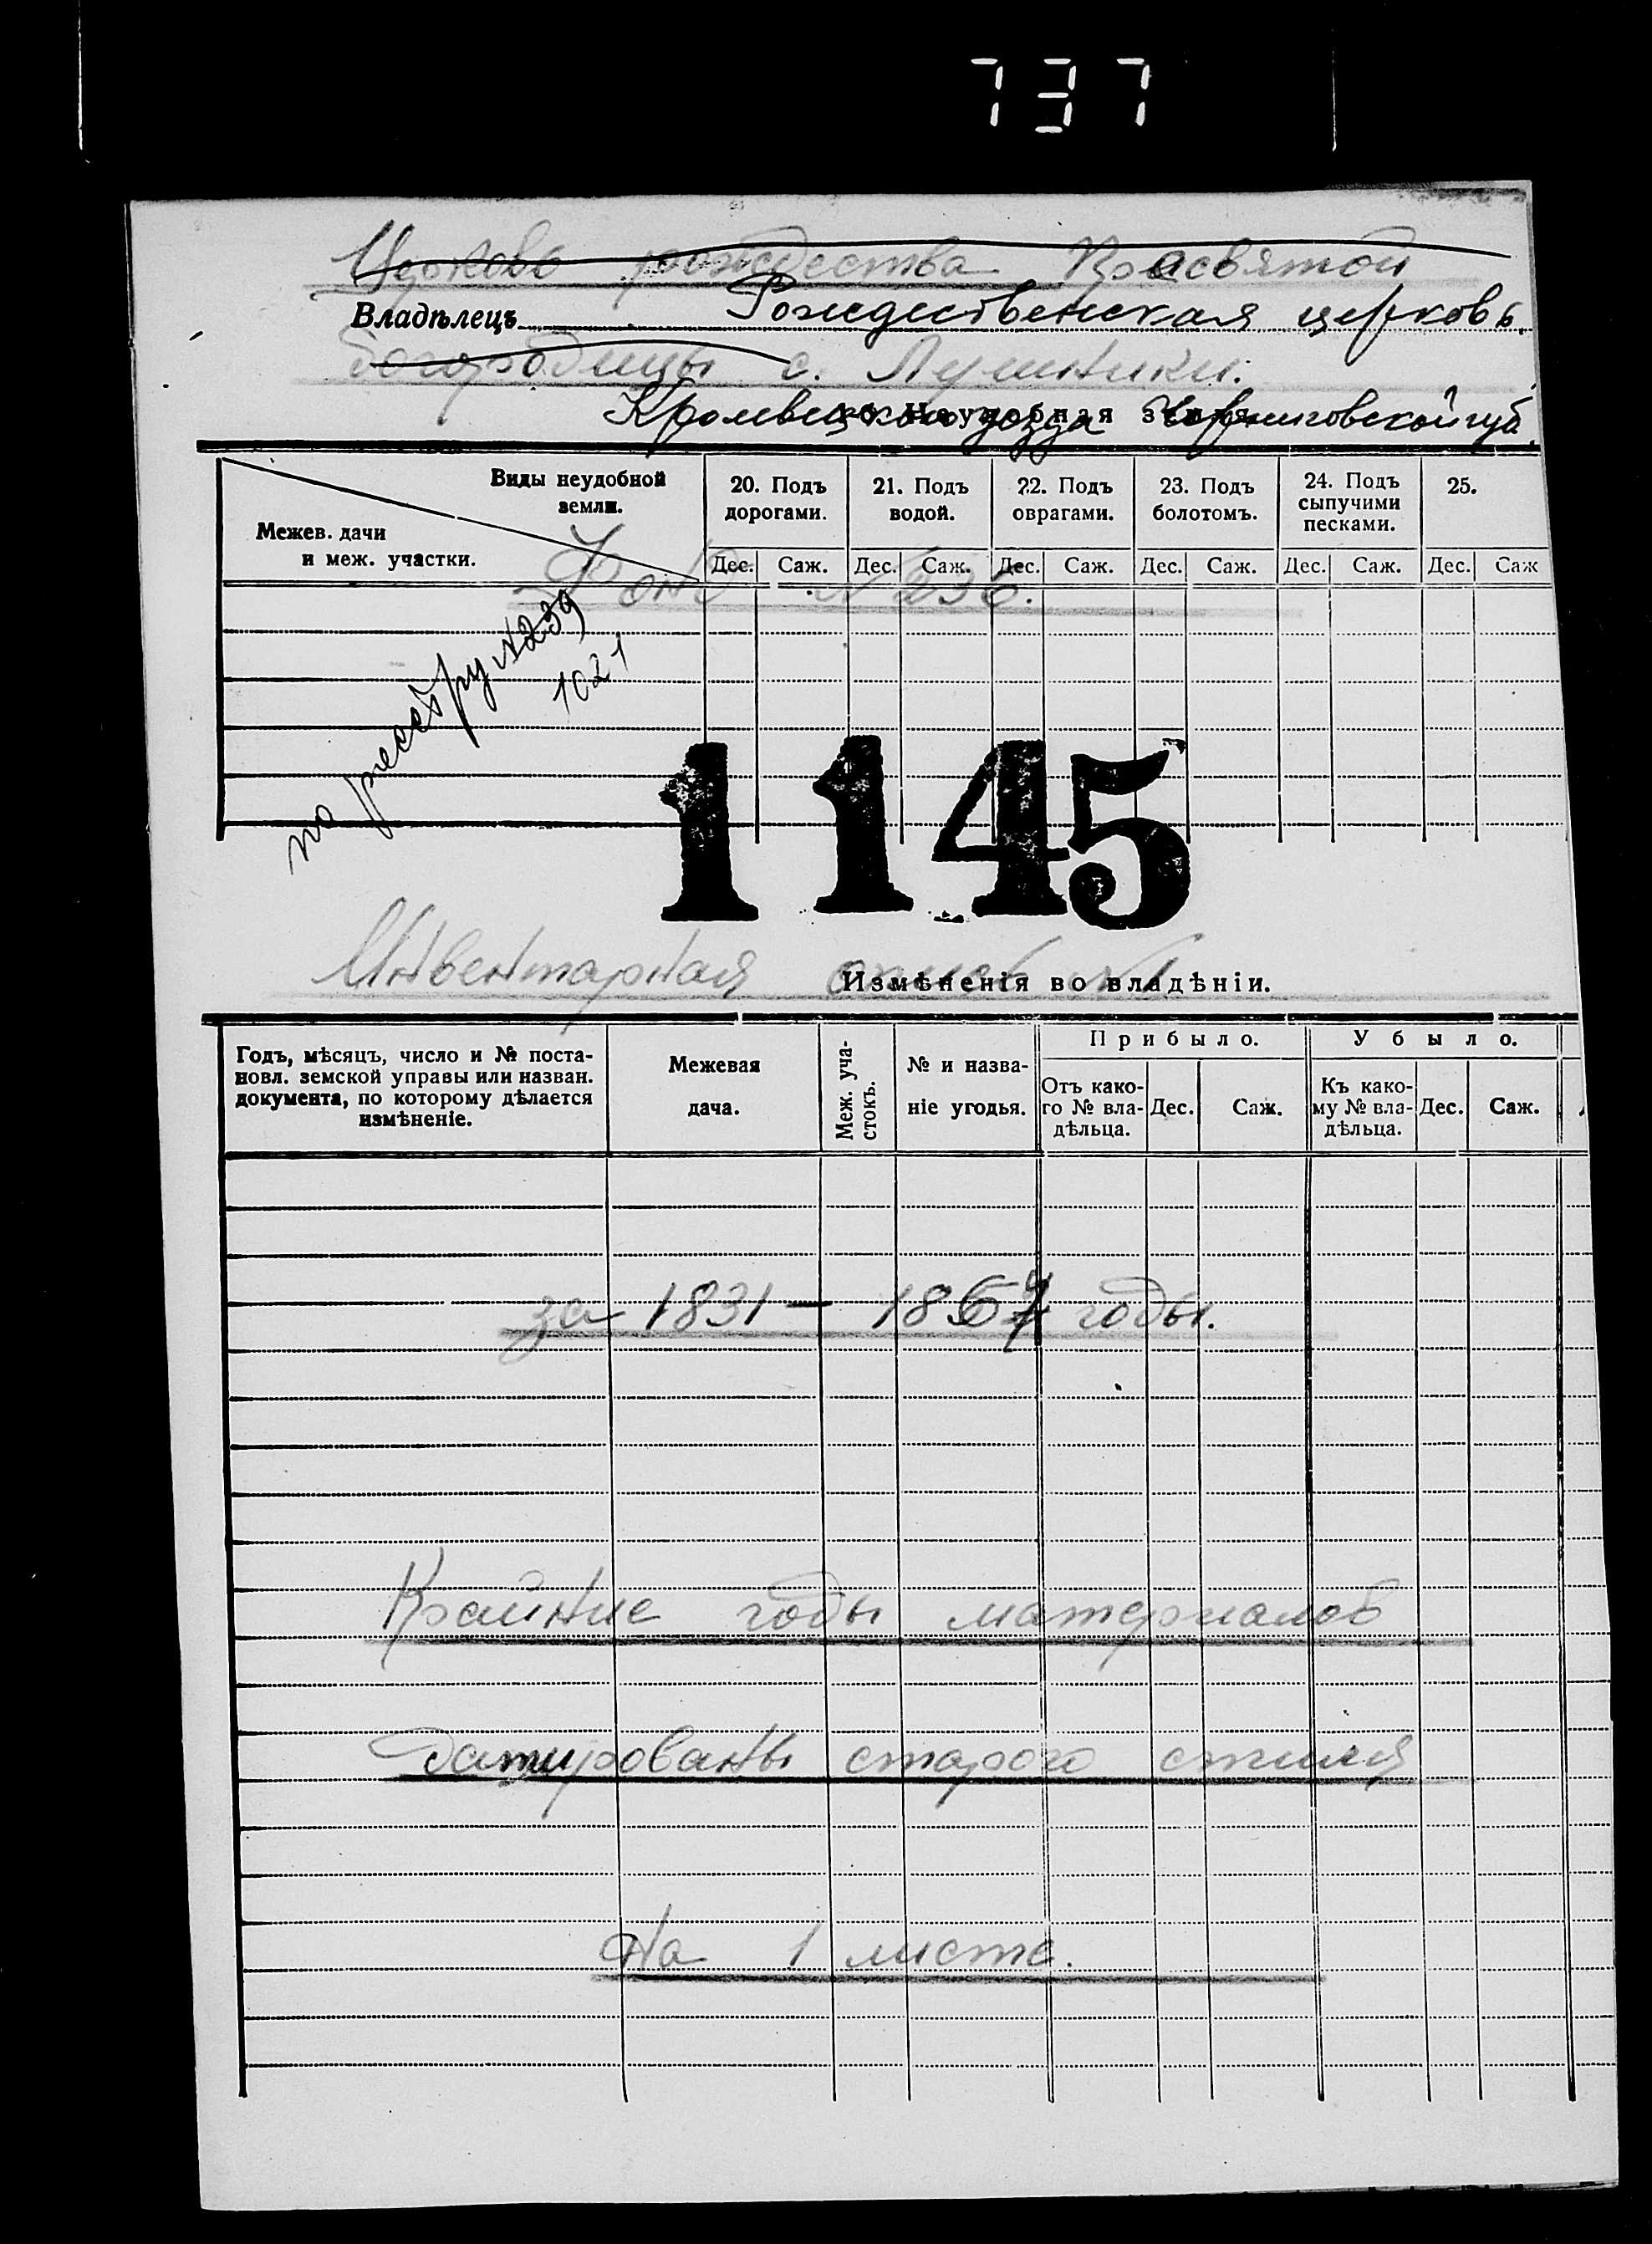 737
Церковь рождества Пресвятой
Владѣлецъ Рождественская церковь
богородицы с. Лушники.
Кролевецкого уезда Черниговской губ.
Неудобная земля
Виды неудобной земли.
Межев. дачи и меж. участки.
20. Подъ дорогами.
21. Подъ водой.
22. Подъ оврагами.
23. Подъ болотомъ.
24. Подъ сыпучими песками.
25.
Дес. Саж. Дес. Саж. Дес. Саж. Дес. Саж. Дес. Саж. Дес. Саж
Фонд № 236.
по реестру № 239
1021
1145
Инвентарная опись №1
Измѣненія во владѣніи.
Годъ, мѣсяцъ, число и № поста-
новл. земской управы или назван.
документа, по которому дѣлается
измѣненіе.
Межевая
дача.
Меж. уча-
стокъ.
№ и назва-
ніе угодья.
Прибыло.
Отъ како-
го № вла-
дѣльца.
Дес.
Саж.
Убыло.
Къ како-
му № вла-
дѣльца.
Дес.
Саж.
за 1831 — 186 годы.
Крайние годы материалов
датированы старого стиля
На 1 листе.